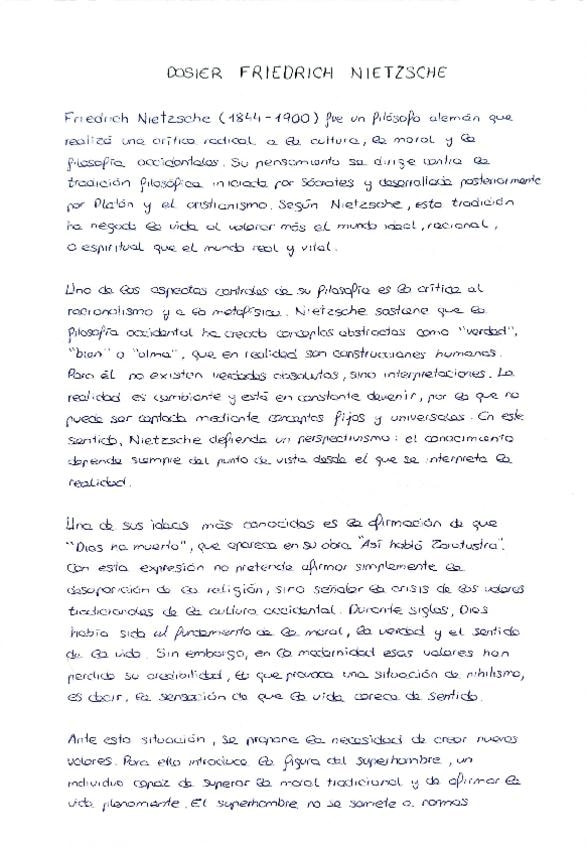 DOSIER FRIEDRICH NIETZSCHE
Friedrich Nietzsche (1844-1900) fue un filósofo alemán que
realizó una crítica radical a la cultura, la moral y la
filosofía occidentales. Su pensamiento se dirige contra la
tradición filosófica iniciada por Sócrates y desarrollada posteriormente
por Platón y el cristianismo. Según Nietzsche, esta tradición
ha negado la vida al valorar más el mundo ideal, racional,
o espiritual que el mundo real y vital.
Uno de los aspectos centrales de su filosofía es la crítica al
racionalismo y a la metafísica. Nietzsche sostiene que la
filosofía occidental ha creado conceptos abstractos como "verdad",
"bien" o "alma", que en realidad son construcciones humanas.
Para él no existen verdades absolutas, sino interpretaciones. La
realidad es cambiante y está en constante devenir, por lo que no
puede ser captada mediante conceptos fijos y universales. En este
sentido, Nietzsche defiende un perspectivismo: el conocimiento
depende siempre del punto de vista desde el que se interpreta la
realidad.
Una de sus ideas más conocidas es la afirmación de que
"Dios ha muerto", que aparece en su obra "Así habló Zaratustra".
Con esta expresión no pretende afirmar simplemente la
desaparición de la religión, sino señalar la crisis de los valores
tradicionales de la cultura occidental. Durante siglos, Dios
había sido el fundamento de la moral, la verdad y el sentido
de la vida. Sin embargo, en la modernidad esos valores han
perdido su credibilidad, lo que provoca una situación de nihilismo,
es decir, la sensación de que la vida carece de sentido.
Ante esta situación, se propone la necesidad de crear nuevos
valores. Para ello introduce la figura del superhombre, un
individuo capaz de superar la moral tradicional y de afirmar la
vida plenamente. El superhombre no se somete a normas